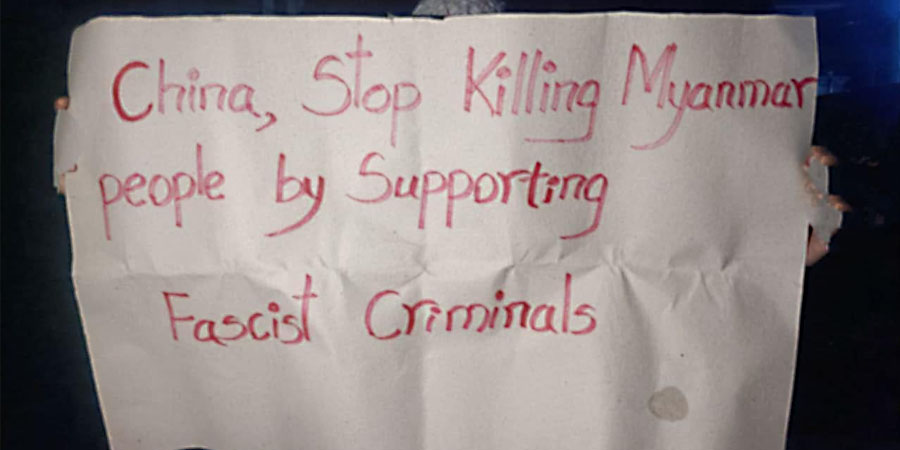 China, Stop Killing Myanmar
people by Supporting
Fascist Criminals